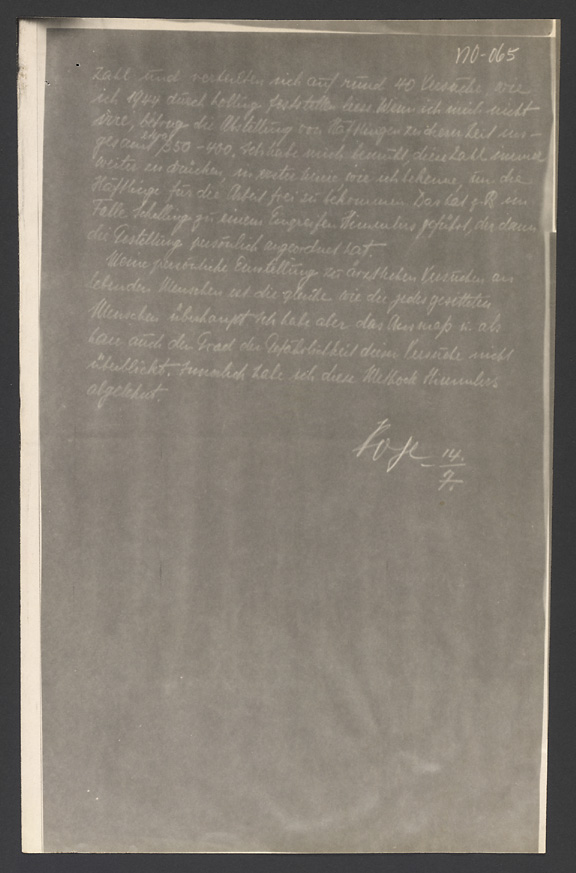 NO-065
Zahl und verteilten sich auf rund 40 Versuche, wie
ich 1944 durch Lolling feststellen liess. Wenn ich mich nicht
irre, betrug die Abstellung von Häftlingen zu diesen hert ins-
gesamt 350 - 400. Ich habe mich bemüht, diese Zahl immer
weiter zu drücken, in erster Linie wie ich bekenne, um die
Häftlinge für die Arbeit frei zu bekommen. Das hat z.B. im
Falle Schilling zu einem Eingreifen Himmlers geführt, der dann
die Gestellung persönlich angeordnet hat.
Meine persönliche Einstellung zu ärztlichen Versuchen an
lebenden Menschen ist die gleiche wie die jedes gesitteten
Menschen überhaupt. Ich habe aber das Ausmaß u. als
Laie auch den Grad der Gefährlichkeit dieser Versuche nicht
überblickt. Innerlich habe ich diese Methode Himmlers
abgelehnt.
14.
7.